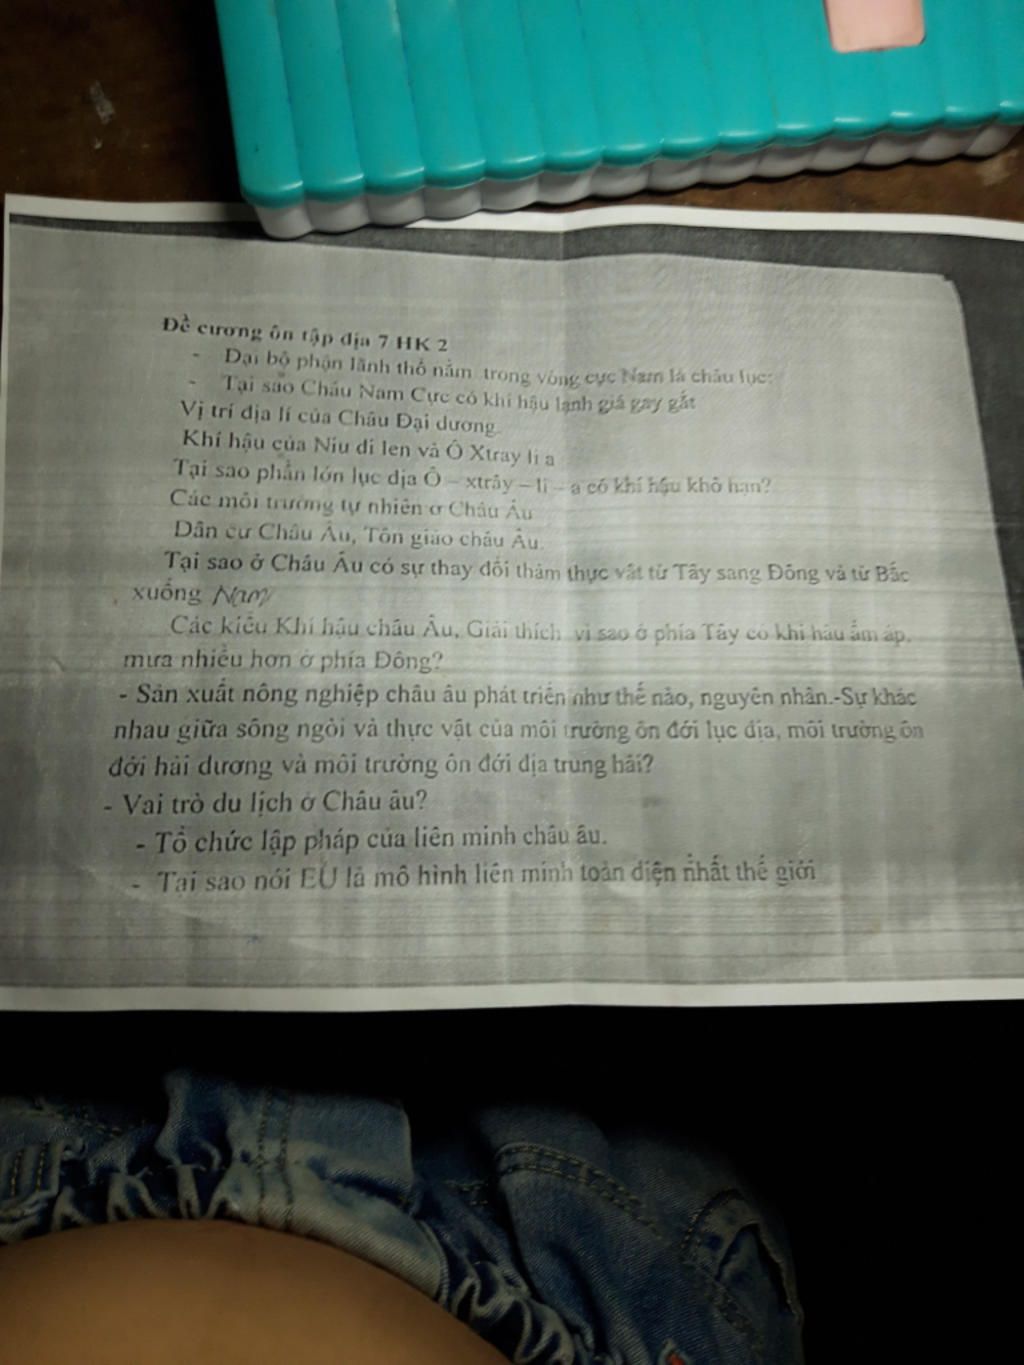 Đề cương ôn tập địa 7 HK 2
- Đại bộ phận lãnh thổ nằm trong vòng cực Nam là châu lục:
- Tại sao Châu Nam Cực có khí hậu lạnh giá gay gắt
Vị trí địa lí của Châu Đại dương.
Khí hậu của Niu di len và Ô Xtray li a
Tại sao phần lớn lục địa Ô – xtrây – li – a có khí hậu khô hạn?
Các môi trường tự nhiên ở Châu Âu
Dân cư Châu Âu, Tôn giáo châu Âu.
Tại sao ở Châu Âu có sự thay đổi thảm thực vật từ Tây sang Đông và từ Bắc
xuống Nam
Các kiểu Khí hậu châu Âu, Giải thích vì sao ở phía Tây có khí hậu ấm áp,
mưa nhiều hơn ở phía Đông?
- Sản xuất nông nghiệp châu âu phát triển như thế nào, nguyên nhân.-Sự khác
nhau giữa sông ngòi và thực vật của môi trường ôn đới lục địa, môi trường ôn
đới hải dương và môi trường ôn đới địa trung hải?
- Vai trò du lịch ở Châu âu?
- Tổ chức lập pháp của liên minh châu âu.
- Tại sao nói EU là mô hình liên minh toàn diện nhất thế giới